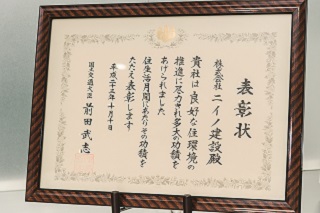 表彰状
株式会社 ニイノ建設殿
貴社は良好な住環境の
推進に尽力され多大の功績を
あげられました
住生活月間にあたりその功績を
たたえ表彰します
平成二十三年十月十日
国土交通大臣 前田武志